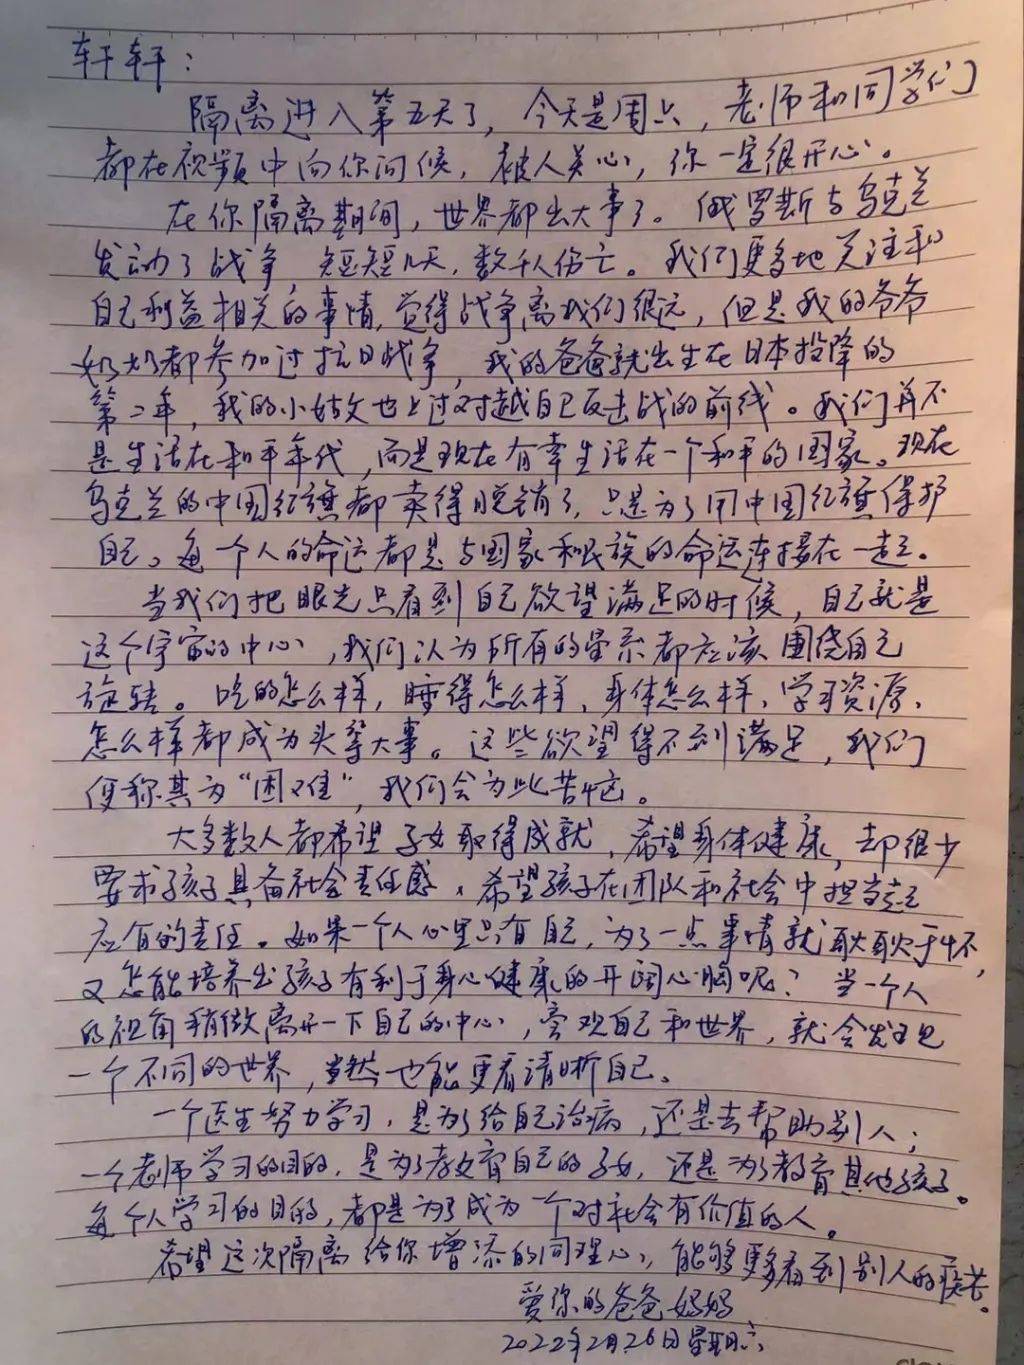 轩轩：
隔离进入第五天了，今天是周六，老师和同学们
都在视频中向你问候，被人关心，你一定很开心。
在你隔离期间，世界都出大事了。俄罗斯与乌克兰
发动了战争，短短几天，数千人伤亡。我们更多地关注和
自己利益相关的事情，觉得战争离我们很远，但是我的爷爷
奶奶都参加过抗日战争，我的爸爸就出生在日本投降的
第二年，我的小姑父也上过对越自卫反击战的前线。我们并不
是生活在和平年代，而是现在有幸生活在一个和平的国家。现在
乌克兰的中国红旗都卖得脱销了，只是为了用中国红旗保护
自己。每一个人的命运都是与国家和民族的命运连接在一起。
当我们把眼光只看到自己欲望满足的时候，自己就是
这个宇宙的中心，我们认为所有的星系都应该围绕自己
旋转。吃的怎么样，睡得怎么样，身体怎么样，学习资源
怎么样都成为头等大事。这些欲望得不到满足，我们
便称其为“困难”，我们会为此苦恼。
大多数人都希望子女取得成就，希望身体健康，却很少
要求孩子具备社会责任感，希望孩子在团队和社会中担当起
应有的责任。如果一个人心里只有自己，为了一点事情就耿耿于怀，
又怎能培养出孩子有利于身心健康的开阔心胸呢？当一个人
的视角稍微离开一下自己的中心，旁观自己和世界，就会发现
一个不同的世界，当然也能更看清晰自己。
一个医生努力学习，是为了给自己治病，还是去帮助别人；
一个老师学习的目的，是为了教育自己的子女，还是为了教育其他孩子。
每个人学习的目的，都是为了成为一个对社会有价值的人。
希望这次隔离给你增添的同理心，能够更多看到别人的疾苦。
爱你的爸爸妈妈
2022年2月26日星期六